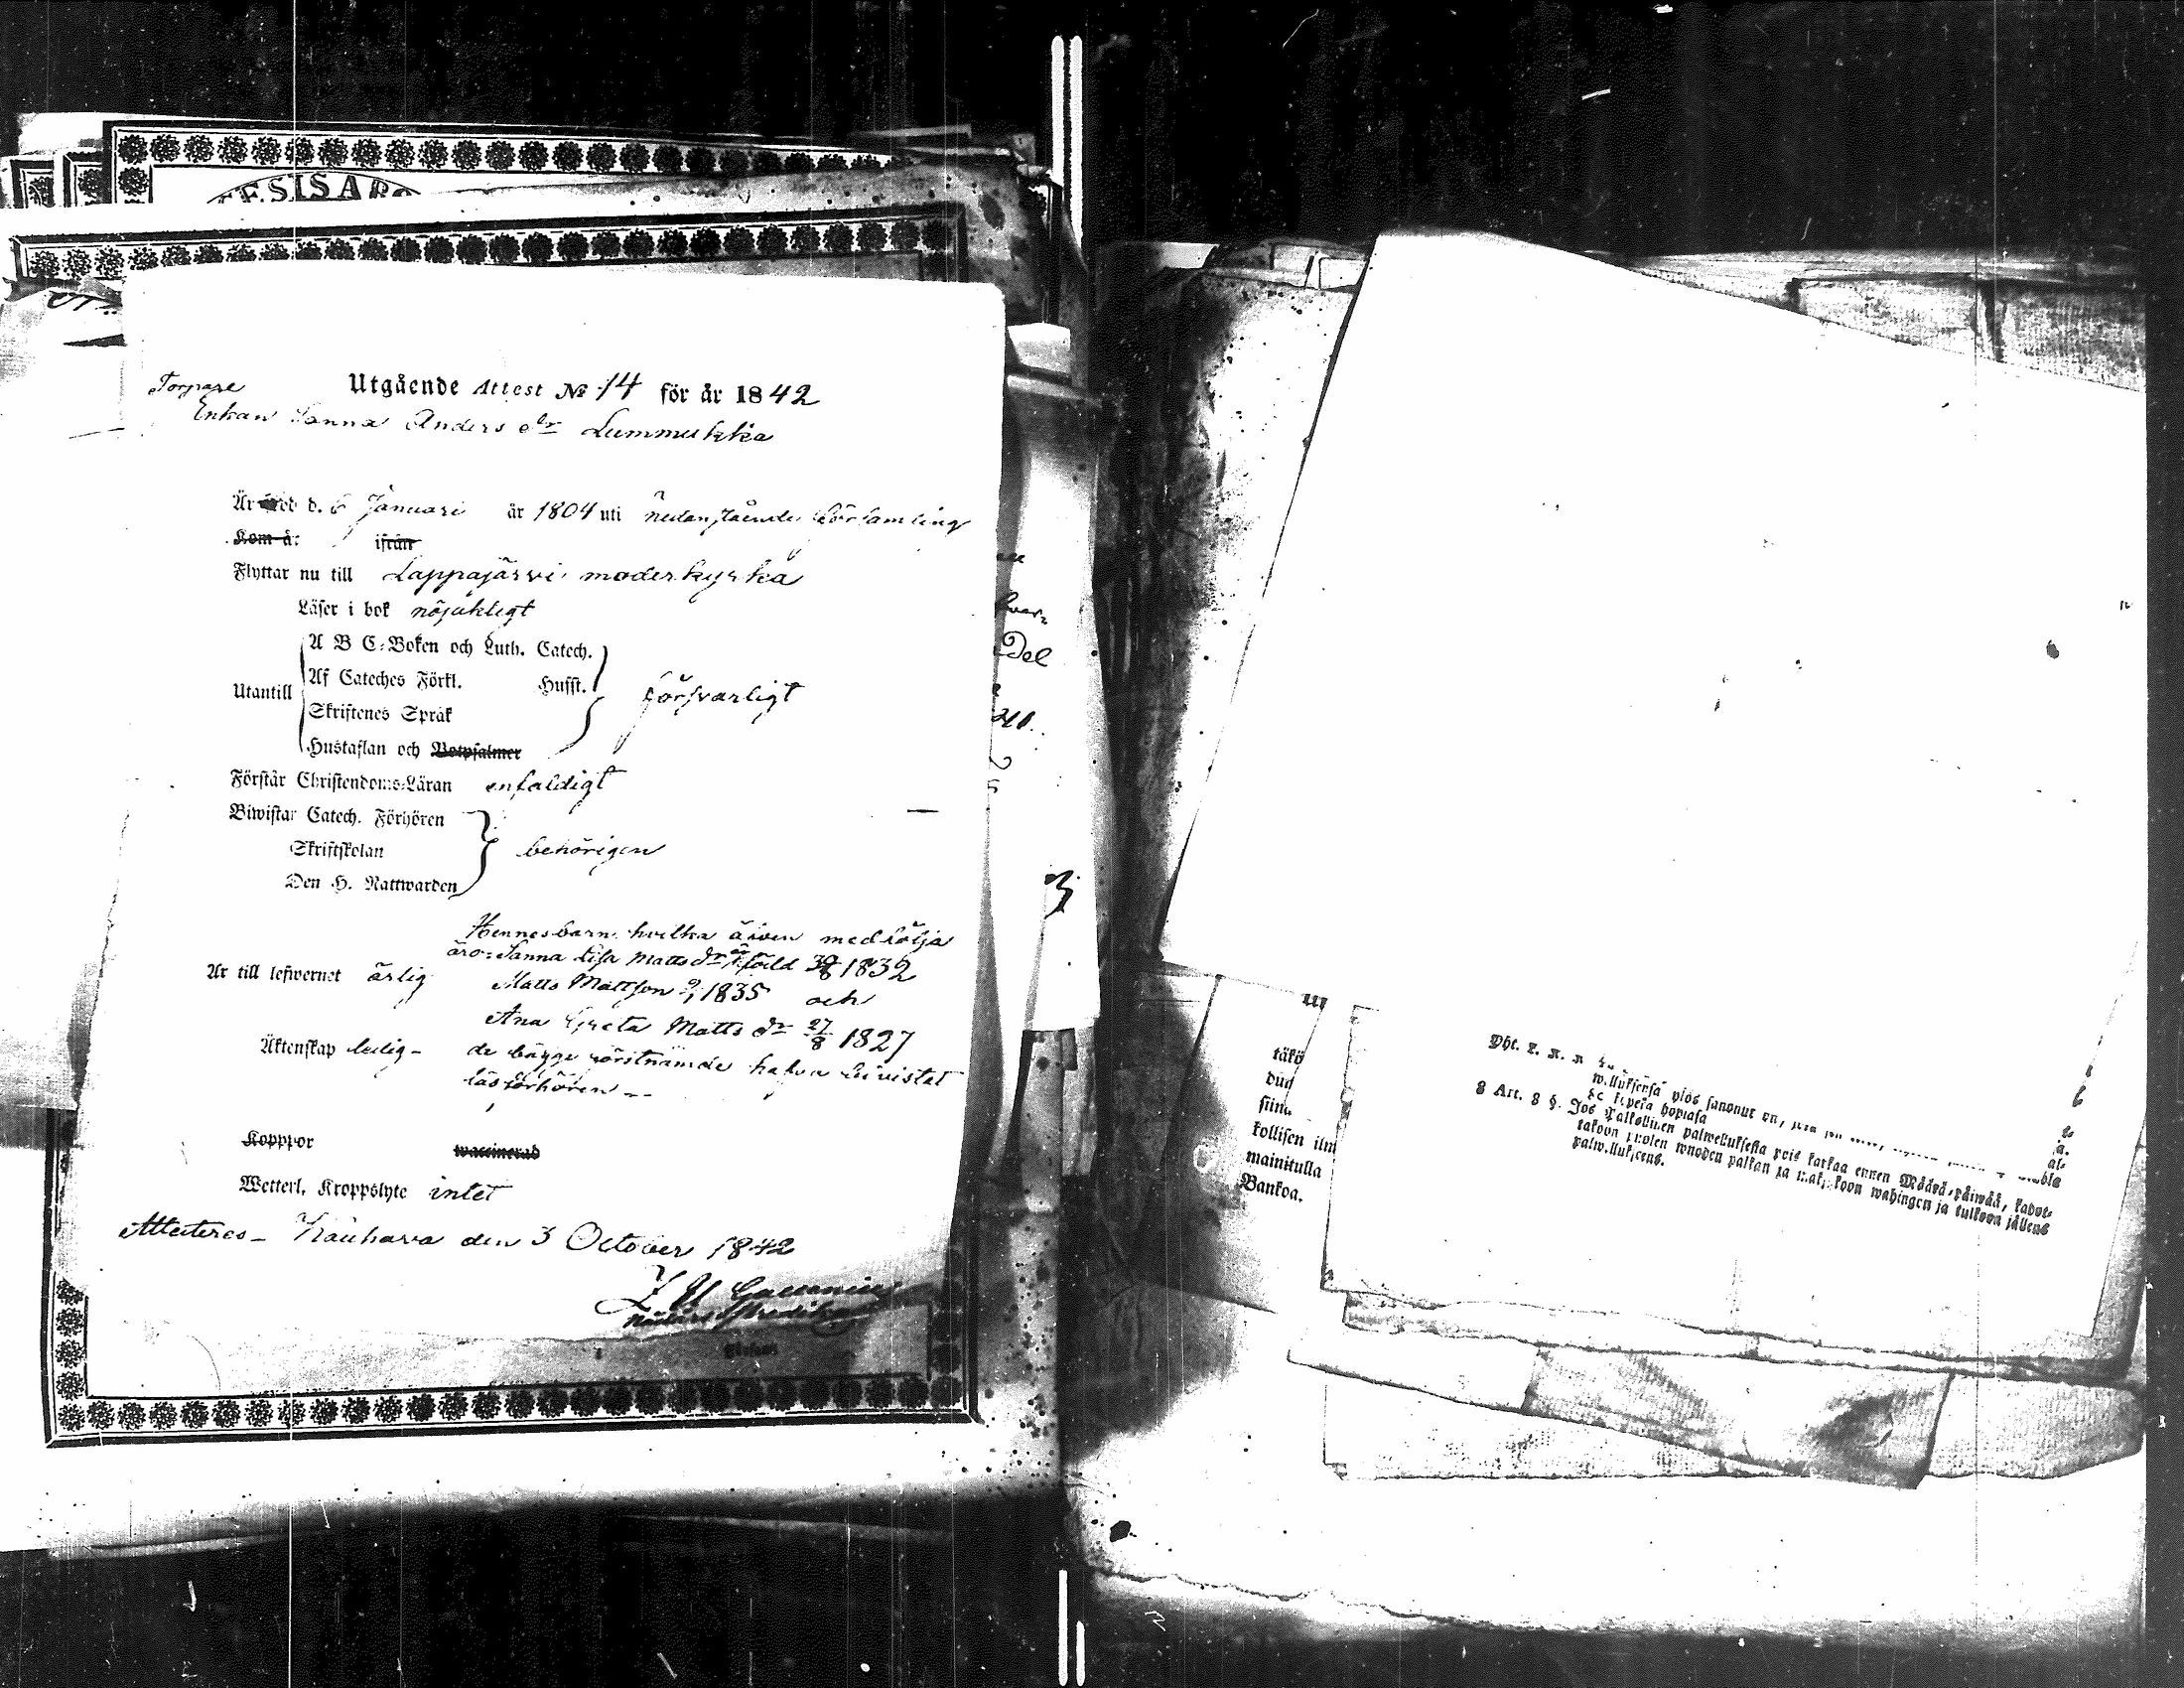 ESISARO
Utgående Attest № 14 för år 1842
Torpare
Enkan Sanna Anders dr Lummukka
Är född d. 6 Januari år 1804 uti nedanstående församling
Kom å: ifrån
Flyttar nu till Lappajärvi moderkyrka
Läser i bok nöjaktigt
A B C-Boken och Luth. Catech.
Af Cateches Förkl. Husst.
Utantill försvarligt
Skriftenes Språk
Hustaflan och Botpsalmer
Förstår Christendoms-Läran enfaldigt
Biwistar Catech. Förhören
Skriftskolan behörigen
Den H. Nattwarden
Hennes barn hvilka äfven medfölja
äro: Sanna Lisa Matts dr född 1832
Är till lefwernet ärlig
Matts Mattson 1835 och
Ana Greta Matts dr 27/8 1827
Äktenskap ledig -
de bägge förstnämde hafva bivistat
läsförhören --
Kopppor waccinerad
Wetterl. Kroppslyte intet
Attesteras - Kauhava den 3 October 1842
Del
3
täkö
duu
siin
kollisen ilm
mainitulla
Bankoa.
8 Art. 8 §. Jos Palkollinen palwelluksesta pois karkaa ennen Määrä-päiwää, kadot-
takoon puolen wuoden palkan ja wahingen ja tulkoon jällens